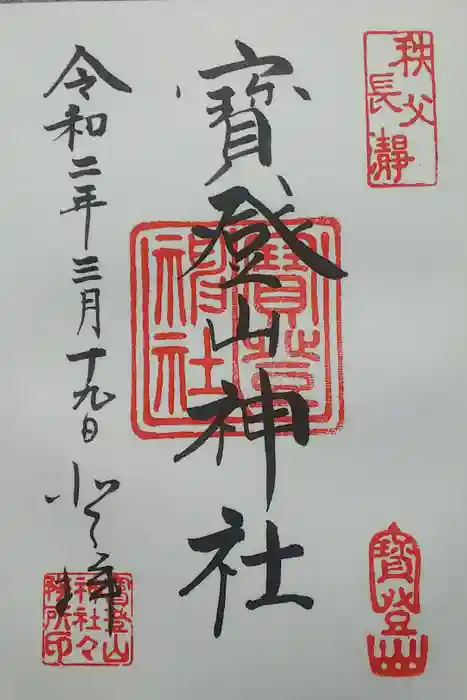 秩父
長瀞
寶登山神社
寶登山
神社
令和二年三月十九日
参拝
寶登山
寶登山
神社々
務所印